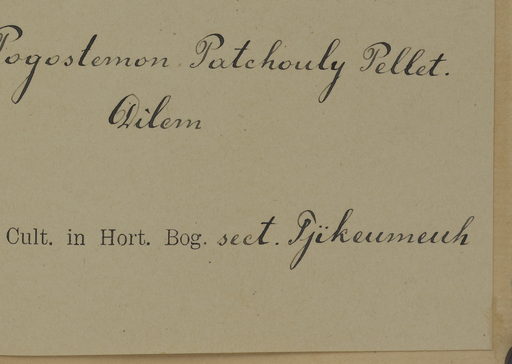 Pogostemon Patchouly Pellet.
Dilem
Cult. in Hort. Bog. sect. Tjikeumeuh